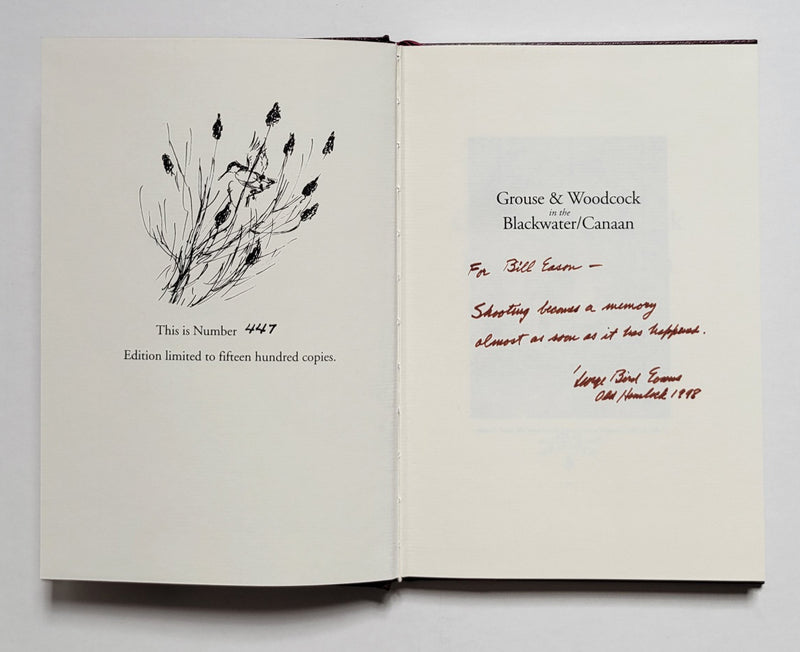 This is Number 447
Edition limited to fifteen hundred copies.
Grouse & Woodcock
in the
Blackwater/Canaan
For Bill Eason —
Shooting becomes a memory
almost as soon as it has happened.
George Bird Evans
Old Hemlock 1998